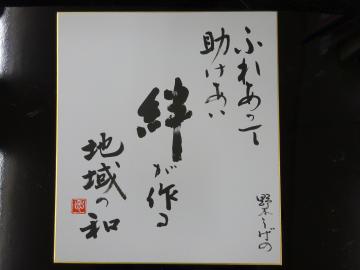 ふれあって
助けあい
絆が作る
地域の和